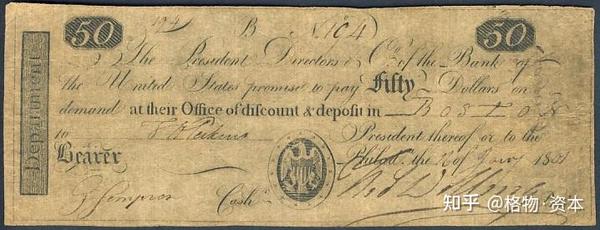 50 194 B No 104 50
The President Directors & Co. of the Bank of
the United States promise to pay Fifty Dollars on
demand at their Office of discount & deposit in Boston
to President thereof or to the
Bearer Philad. the of 1801
G Simpson Cash.
Department
知乎 @格物·资本